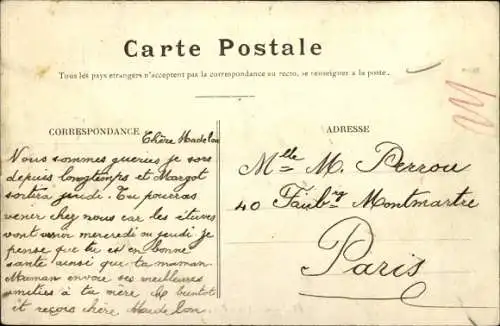 Carte Postale
Tous les pays etrangers n'acceptent pas la correspondance au recto, se renseigner a la poste.
CORRESPONDANCE
ADRESSE
Chère Madelon
Nous sommes queries je sors
depuis longtemps et Margot
sortira jeudi. Tu pourras
venir chez nous car les étuves
vont venir mercredi ou jeudi je
pense que tu es en bonne
santé ainsi que ta maman
Maman envoie ses meilleures
amitiés à ta mère A bientôt
et reçois chère Madelon.
Mlle M. Perrou
40 Faubrg Montmartre
Paris